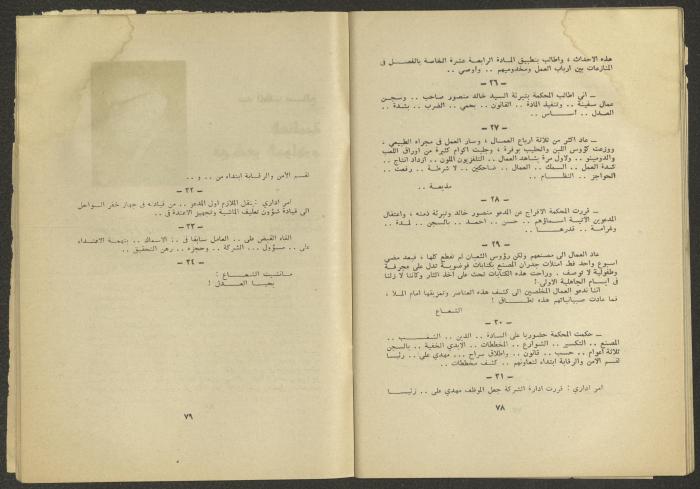 هذه الاحداث ، واطالب بتطبيق المادة الرابعة عشرة الخاصة بالفصل في
المنازعات بين ارباب العمل ومخدوميهم .. وأوصي ..
– ٢٦ –
ــ اني اطالب المحكمة بتبرئة السيد خالد منصور صاحب .. وسجن
عمال سفينة .. وتنفيذ المادة .. القانون .. يحمي .. الضرب .. بشدة ..
العدل .. أســاس ..
– ٢٧ –
ــ عاد اكثر من ثلاثة ارباع العمــال ، وسار العمل في مجراه الطبيعي ،
ووزعت كؤوس اللبن والحليب بوفرة ، وجلبت اكوام كثيرة من اوراق اللعب
والدومينو .. ولاول مرة يشاهد العمال .. التلفزيون الملون .. ازداد انتاج ..
كمدة العمل .. السمك .. العمال .. ضاحكين .. لا شرطة .. رفعت ..
الحواجز .. النظــام ..
مذيعة ..
– ٢٨ –
ــ قررت المحكمة الافراج عن المدعو خالد منصور وتبرئة ذمته ، واعتقال
المدعوين الآتية اسماؤهم .. حسن .. احمد .. بالسجن .. لمدة ..
وغرامة .. قدرهــا ..
– ٢٩ –
عاد العمال الى مصنعهم ولكن رؤوس الثعبان لم تقطع كلها ، فبعد مضي
اسبوع واحد فقط امتلات جدران المصنع بكتابات فوضوية تدل على عجرفة
وطفولية لا توصف . وراحت هذه الكتابات تحث على اخذ الثأر وكأننا لا زلنا
في ايـــام الجاهلية الاولى !
اننا ندعو العمال المخلصين الى كشف هذه العناصر وتعريتها امام الملا ،
فما عادت صبيانياتهم هذه تطــاق !
الشعاع
– ٣٠ –
ــ حكمت المحكمة حضوريا على السادة .. الذين .. الشغــب ..
المصنع .. التكسير .. الشوارع .. المخططات .. الايدي الخفية .. بالسجن
ثلاثة أعوام .. حسب .. قانون .. واطلاق سراح ... مهدي علي .. رئيسا
لقسم الامن والرقابة ابتداء لتعاونهم .. كشف مخططات ..
– ٣١ –
امر اداري : قررت ادارة الشركة جعل الموظف مهدي علي .. رئيســا
٧٨
لقسم الامن والرقــابة ابتداء من .. و ..
– ٣٢ –
امر اداري : ينقل الملازم اول المدعو .. من قيادته في جهاز خفر السواحل
الى قيادة شؤون تعليف الماشية وتجهيز الاعتدة في ..
– ٣٣ –
القاء القبض على .. العامل سابقا في .. الاسماك .. بتهمة الاعتــداء
على .. مسؤول ... الشركة .. وحجزه .. رهن التحقيق ..
– ٣٤ –
مانشيت الشعــاع :
يحيــا العــدل !
٧٩